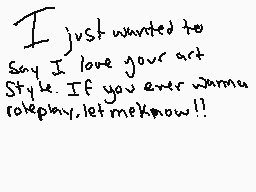 I just wanted to
say I love your art
style. If you ever wanna
roleplay, let me know!!